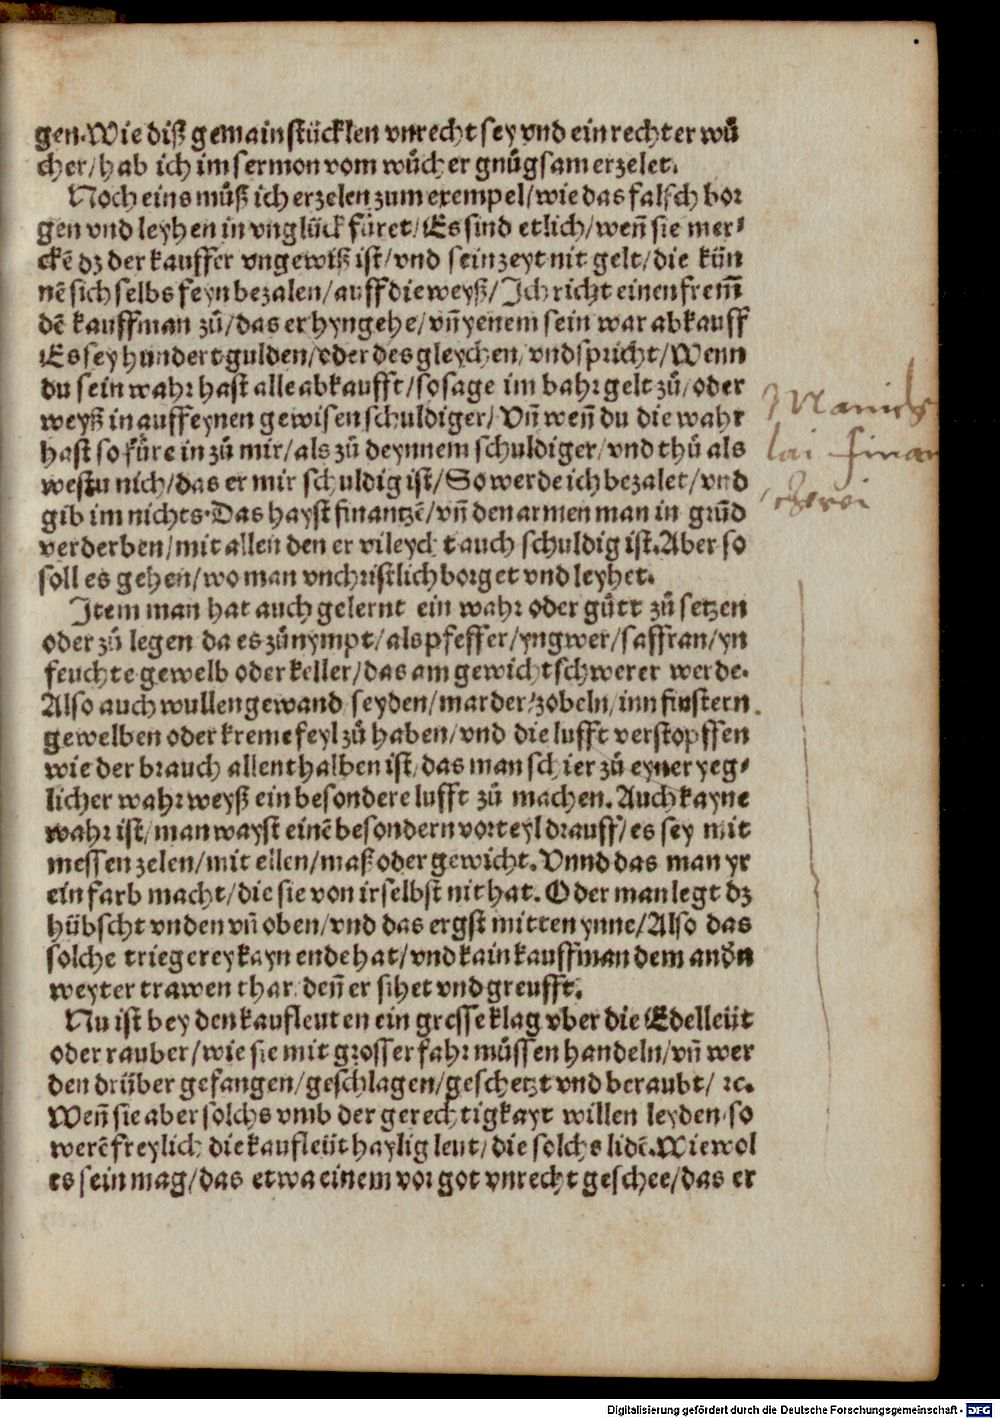 gen. Wie diß gemain stücklen vnrecht sey vnd ein rechter wů
cher/ hab ich im sermon vom wůcher gnůgsam erzelet.
Noch eins můß ich erzelen zum exempel/ wie das falsch bor
gen vnd leyhen in vnglück füret/ Es sind etlich/ weñ sie mer⸗
ckē dz der kauffer vngewiß ist/ vnd sein zeyt nit gelt/ die kün
nē sich selbs feyn bezalen/ auff die weyß/ Ich richt einen frem̄
dē kauffman zů/ das er hyngehe/ vñ yenem sein war abkauff
Es sey hundert gulden/ oder des gleychen/ vnd spricht/ Wenn
du sein wahr hast alle abkaufft/ so sage im bahr gelt zů/ oder
weyß in auff eynen gewisen schuldiger/ Vñ weñ du die wahr
hast so füre in zů mir/ als zů deynnem schuldiger/ vnd thů als
westu nich/ das er mir schuldig ist/ So werde ich bezalet/ vnd
gib im nichts. Das hayst finantzē/ vñ den armen man in grůd
verderben/ mit allen den er vileycht auch schuldig ist. Aber so
soll es gehen/ wo man vnchristlich borget vnd leyhet.
Item man hat auch gelernt ein wahr oder gůtt zů setzen
oder zů legen da es zůnympt/ als pfeffer/ yngwer/ saffran/ yn
feuchte gewelb oder keller/ das am gewicht schwerer werde.
Also auch wullen gewand seyden/ marder/ zobeln/ inn finstern
gewelben oder kreme feyl zů haben/ vnd die lufft verstopffen
wie der brauch allenthalben ist/ das man schier zů eyner yeg⸗
licher wahr weyß ein besondere lufft zů machen. Auch kayne
wahr ist/ man wayst einē besondern vorteyl drauff/ es sey mit
messen zelen/ mit ellen/ maß oder gewicht. Vnnd das man yr
ein farb macht/ die sie von ir selbst nit hat. Oder man legt dz
hübscht vnden vñ oben/ vnd das ergst mitten ynne/ Also das
solche triegerey kayn ende hat/ vnd kain kauffman dem andn
weyter trawen thar. deñ er sihet vnd greufft.
Nu ist bey den kaufleuten ein grosse klag vber die Edelleüt
oder rauber/ wie sie mit grosser fahr müssen handeln/ vñ wer
den drüber gefangen/ geschlagen/ geschetzt vnd beraubt/ ꝛc.
Weñ sie aber solchs vmb der gerechtigkayt willen leyden/ so
werē freylich die kaufleüt haylig leut/ die solchs lidē. Wiewol
es sein mag/ das etwa einem vor got vnrecht geschee/ das er
lai finan
Digitalisierung gefördert durch die Deutsche Forschungsgemeinschaft - DFG